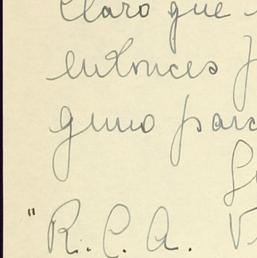 Claro que
entonces
guno para
"R.C.A. V